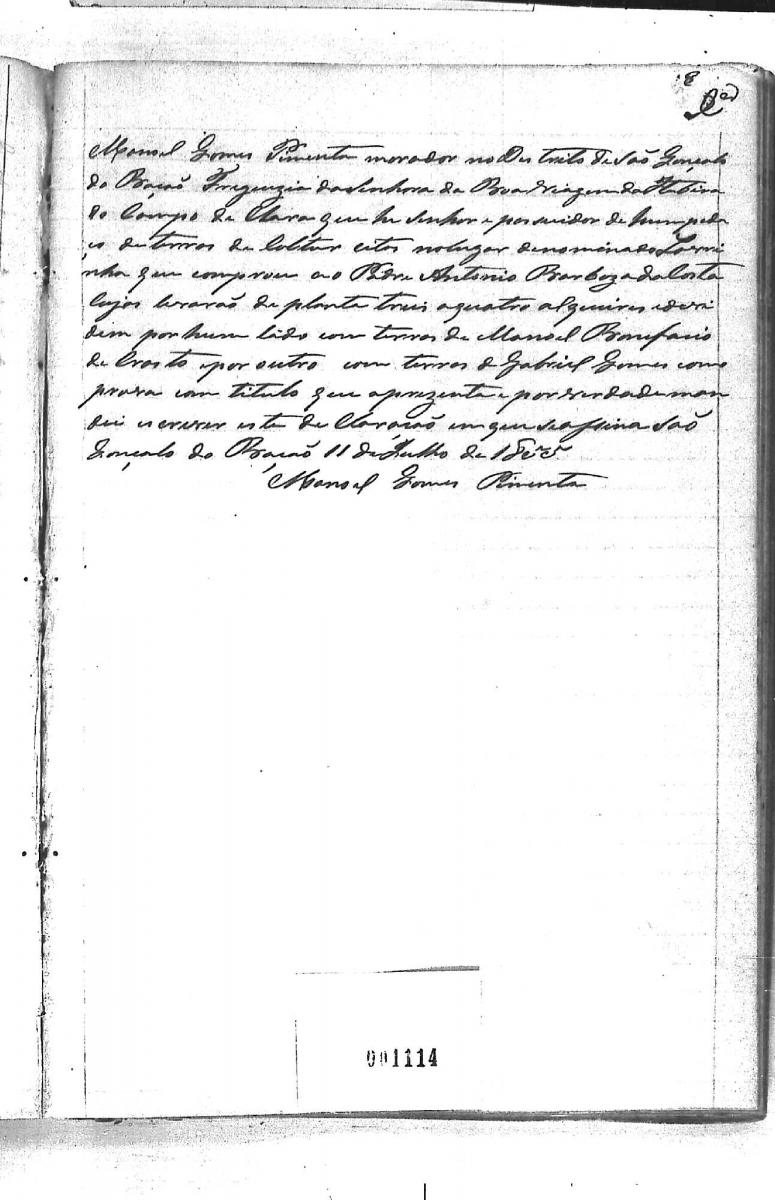 8
Manoel Gomes Pimenta morador no Destrito de São Gonçalo
do Bação Freguezia da Senhora da Boa viagem da Itabira
do Campo de Clara que he senhor e possuidor de hum peda
ço de terras de Coltur citos no lugar denominado
nha que comprou ao Padre Antonio Barboza da Costa
Cujos levarão de planta treis a quatro alqueires e devi
dem por hum lado com terras de Manoel Bonifacio
de Crasto e por outro com terras de Gabriel Gomes como
prova com titulo que aprezenta e por verdade man
dei escrever esta de Claração em que se asina São
Gonçalo do Bação 11 de Julho de 1855
Manoel Gomes Pimenta
001114